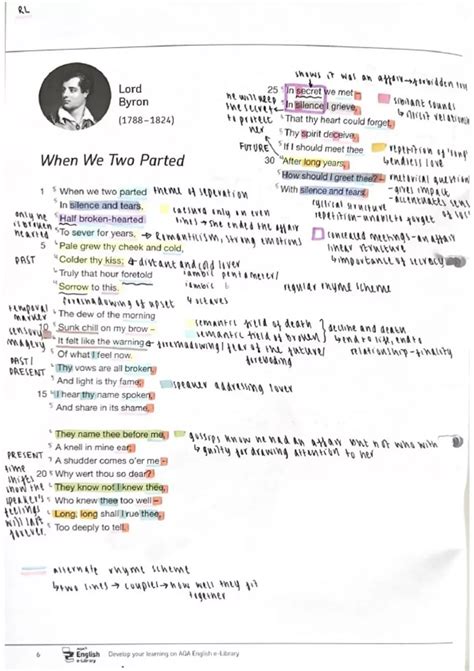 RL
Lord
Byron
(1788–1824)
When We Two Parted
1 When we two parted theme of seperation
In silence and tears,
Half broken-hearted
To sever for years, → Romanticism, strong emotions
caesura only on even
lines → she ended the affair
only he
is broken
hearted
5 Pale grew thy cheek and cold,
Colder thy kiss; distant and cold lover
Truly that hour foretold
Sorrow to this.
iambic pentameter/
iambic
foreshadowing of upset
regular rhyme scheme
PAST
The dew of the morning
10 Sunk chill on my brow –
It felt like the warning
Of what I feel now.
temporal
marker
sensory
imagery
semantic field of death
semantic field of broken
decline and death
foreshadowing / fear of the future/
foreboding
relationship - finality
PAST/
PRESENT
Thy vows are all broken,
And light is thy fame;
speaker addressing lover
15 I hear thy name spoken,
And share in its shame.
They name thee before me,
A knell in mine ear;
A shudder comes o'er me –
20 Why wert thou so dear?
They know not I knew thee,
Who knew thee too well –
Long, long shall I rue thee,
Too deeply to tell.
gossips know he had an affair but not who with
guilty for drawing attention to her
PRESENT
time
shifts
show the
speaker's
feelings
will last
forever.
shows it was an affair → forbidden
25 In secret we met –
In silence I grieve,
That thy heart could forget,
Thy spirit deceive.
If I should meet thee
30 After long years,
How should I greet thee? –
With silence and tears.
he will keep
the secret
to protect
her
FUTURE
sibilant sounds
illicit relationship
repetition of 'long'
endless love
rhetorical question
gives impact
cyclical structure
repetition - unable to forget
concealed meetings - an affair
linear structure
importance of secrecy
alternate rhyme scheme
two lines → couplet → how well they fit
together
6
AQA
English
e-Library
Develop your learning on AQA English e-Library